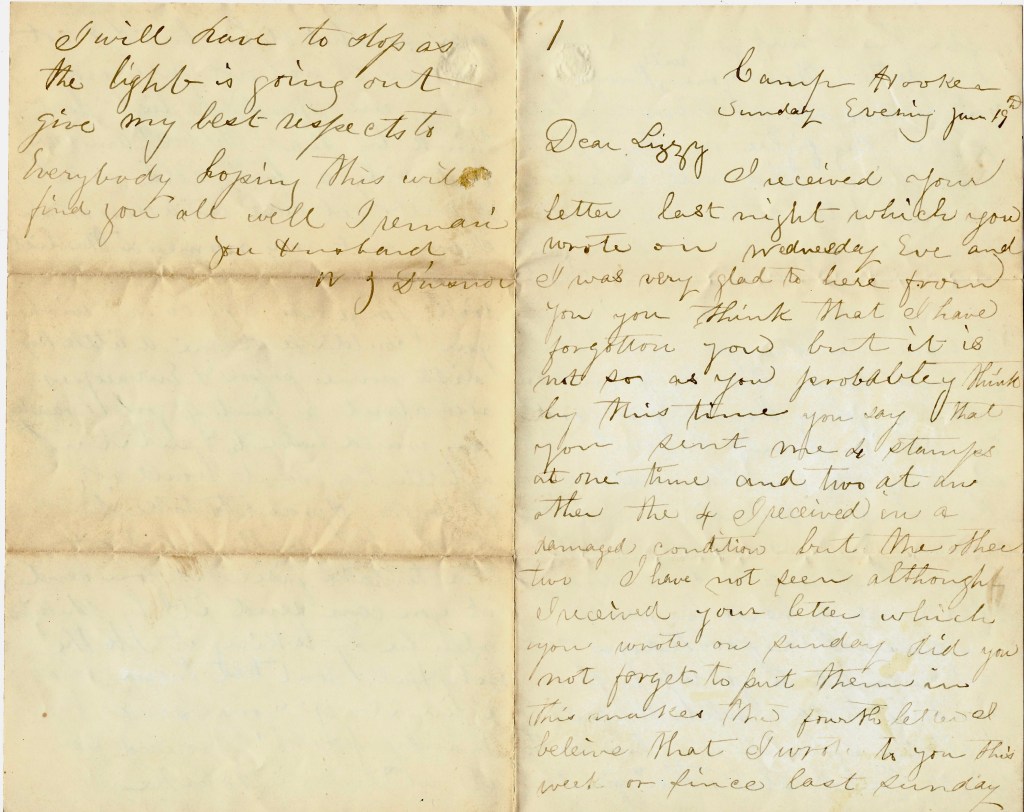 1
Camp Hooker
Sunday Evening Jan 19
Dear Lizzy
I received your
letter last night which you
wrote on Wednesday Eve and
I was very glad to here from
you you think that I have
forgotton you but it is
not so as you probabley think
by this time you say that
you sent me 4 stamps
at one time and two at an
other the 4 I received in a
damaged condition but the other
two I have not seen althought
I received your letter which
you wrote on sunday did you
not forget to put them in
this makes the fourth letter I
beleive that I wrote to you this
week or since last sunday
I will have to stop as
the light is going out
give my best respects to
Everybody hoping this will
find you all well I remain
Husband